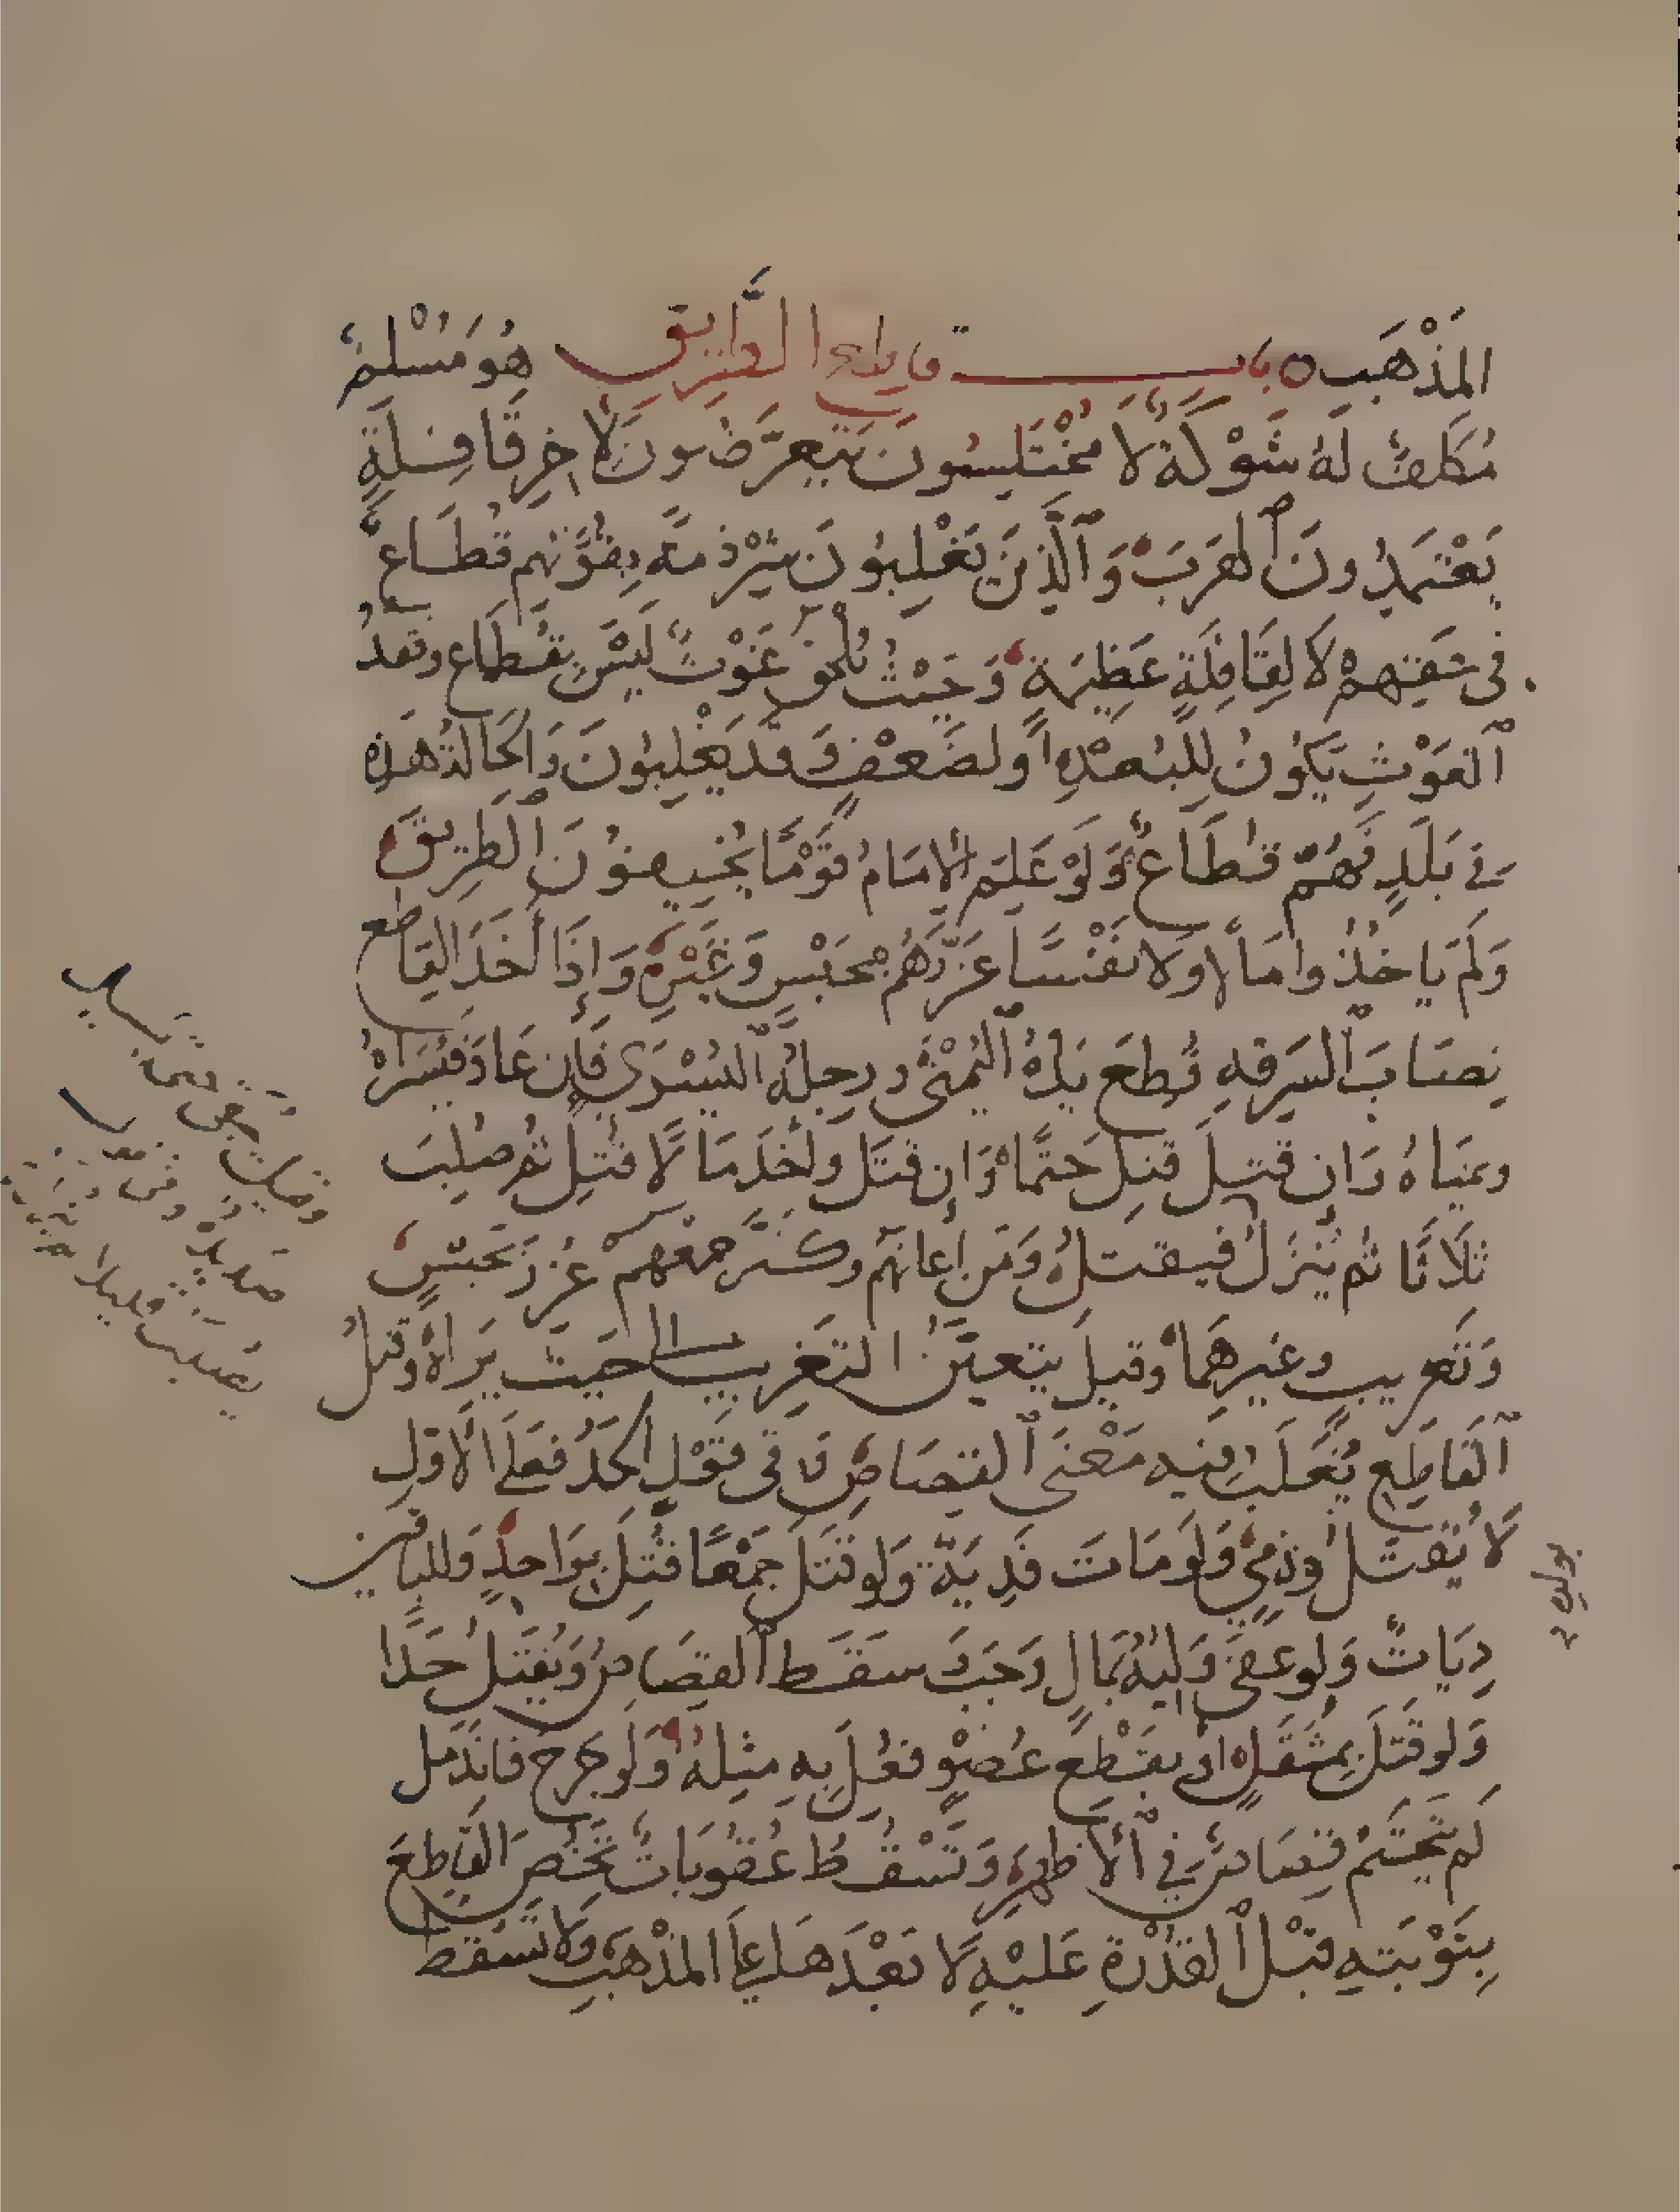 المَذْهَبِ ٥ باب قاطع الطَّريق هُوَ مُسْلِمٌ
مُكَلَّفٌ لَهُ شَوْكَةٌ لَا مُخْتَلِسُونَ يَتَعَرَّضُونَ لِآخِرِ قَافِلَةٍ
يَعْتَمِدُونَ ٱلهَرَبَ وَٱلَّذِينَ يَغْلِبُونَ شِرْذِمَةً بِقُوَّتِهِم قُطَّاعٌ
فِي حَقِّهِمْ لَا لِقَافِلَةٍ عَظِيمَةٍ وَحَيْثُ يَلْحَقُ غَوْثٌ لَيْسَ بِقُطَّاعٍ وفَقْدُ
ٱلغَوْثِ يَكُونُ لِلْبُعْدِ أو لضَعْفٍ وَقَدْ يَغْلِبُونَ وَالحَالَةُ هَذِهِ
فِي بَلَدٍ فَهُمْ قُطَّاعٌ وَلَوْ عَلِمَ الإمَامُ قَوْمًا يُخِيفُونَ ٱلطَّرِيقَ
وَلَمْ يَاخُذُوا مَالًا وَلَا نَفْسًا عَزَّرَهُمْ بِحَبْسٍ وَغَيْرِهِ وَإِذَا أَخَذَ القَاطِعُ
نِصَابَ ٱلسَرِقَةِ قُطِعَ يَدُهُ ٱليُمْنَى ورِجلُهُ ٱليُسْرَى فَإِن عَادَ فَيُسْرَاهُ
ويمنَاهُ وَإن قَتَلَ قُتِلَ حَتْمًا وَإن قَتَلَ وأَخَذَ مَالًا قُتِلَ ثُمَّ صُلِبَ
ثَلَاثًا ثُمَّ يُنْزَلُ فيقتلُ وَمَن أعانَهُم وكَثَّرَ جمعَهُم عُزِّرَ بحَبْسٍ
وَتَغْرِيبٍ وغيرِهِمَا وقيلَ يتعيّنُ التَغرِيب الى حَيثُ يَرَاهُ وَقتلُ
ٱلقَاطِعِ يُغَلَّبُ فِيهِ مَعْنَى ٱلقِصَاصِ وَفي قَوْلٍ الحَدُّ فعَلَى الأوّلِ
لَا يُقْتَلُ وذمّيٍّ وَلَو مَاتَ فَدِيَةٌ وَلو قَتَلَ جَمْعًا قُتِلَ بِوَاحِدٍ وَللبَاقِينَ
دِيَاتٌ وَلو عَفَى وَلِيُّهُ بمَالٍ وَجَبَ وَسقَطَ ٱلقِصَاصُ وَيُقتَلُ حَدًّا
وَلو قَتَلَ بِمُثَقَّلٍ أو بقَطْعِ عُضْوٍ فُعِلَ بِهِ مثلُهُ وَلَو جَرَحَ فاندَمَلَ
لَم يَتَحَتَّم قصَاصٌ فِي ٱلأَظهَرِ وَتَسْقُطُ عُقُوبَاتٌ تخُصّ القَاطِعَ
بِتَوْبَتِهِ قبْلَ ٱلقُدْرَةِ عَلَيْهِ لَا بَعْدَهَا عَلَى المَذْهَبِ وَلَا تَسْقُطُ
بولده